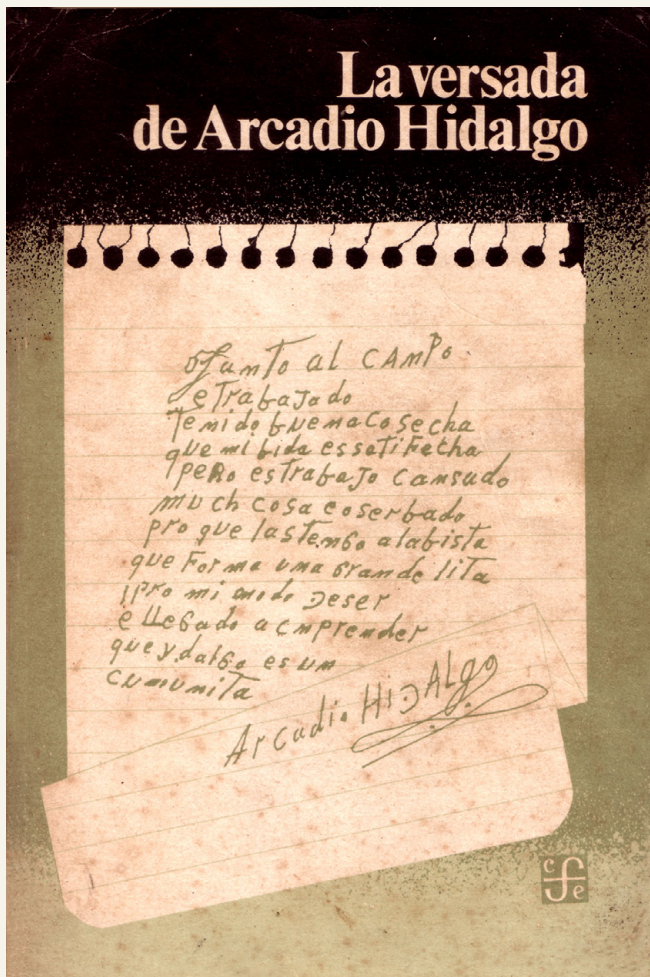 La versada
de Arcadio Hidalgo
Junto al CAMPO
e TrabaJado
Tenido buena Cosecha
que mi bida es satiFecha
peRo es TrabaJo Cansado
much cosa eoserbado
pro que las Tengo alabista
que Forma una Grande lita
ipro mi modo Deser
e lleGado a cmprender
que ydalGo es un
cumunita
Arcadio HiDAlgo
c f e